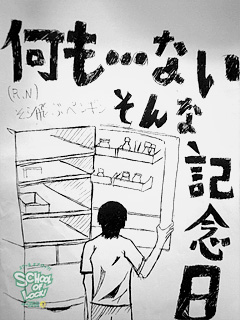 何も…ない
(R.N)
空飛ぶペンギン
そんな
記念日
SCHOOL
OF
LOCK!